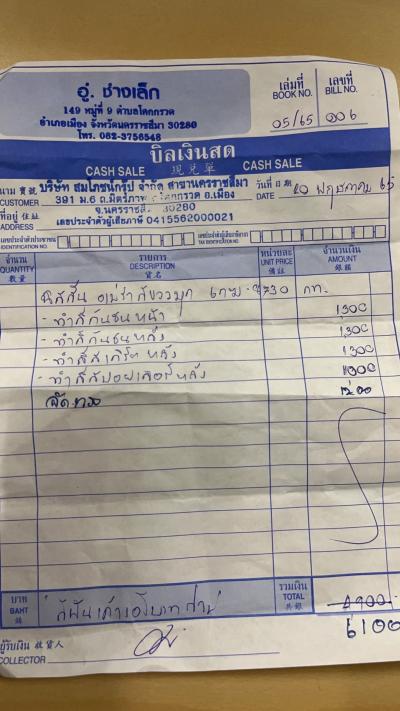 อู่ ช่างเล็ก
149 หมู่ที่ 9 ตำบลโคกกรวด
อำเภอเมือง จังหวัดนครราชสีมา 30280
โทร. 062-3756548
เล่มที่ เลขที่
BOOK NO. BILL NO.
05/65 006
บิลเงินสด
CASH SALE 現兌單 CASH SALE
นาม 寶號 บริษัท สมโภชน์กรุ๊ป จำกัด สาขานครราชสีมา วันที่ 日期 20 พฤษภาคม 65
CUSTOMER 391 ม.6 ถ.มิตรภาพ ต.โคกกรวด อ.เมือง DATE
ที่อยู่ 住址 จ.นครราชสีมา 30280
ADDRESS เลขประจำตัวผู้เสียภาษี 0415562000021
เลขประจำตัวประชาชน เลขประจำตัวผู้เสียภาษีอากร
IDENTIFICATION NO. TAX IDENTIFICATION NO.
จำนวน รายการ หน่วยละ จำนวนเงิน
QUANTITY DESCRIPTION UNIT PRICE AMOUNT
數量 貨名 備註 銀碼
730 กท.
- ทำสีกันชนหน้า 1,300
- ทำสีกันชนหลัง 1,300
- ทำสีสเกิร์ตหลัง 1,300
- ทำสีสปอยเลอร์หลัง 1,000
1,200
บาท รวมเงิน
BAHT TOTAL 4,900
銖 共銀 6,100
ผู้รับเงิน 收貨人
COLLECTOR